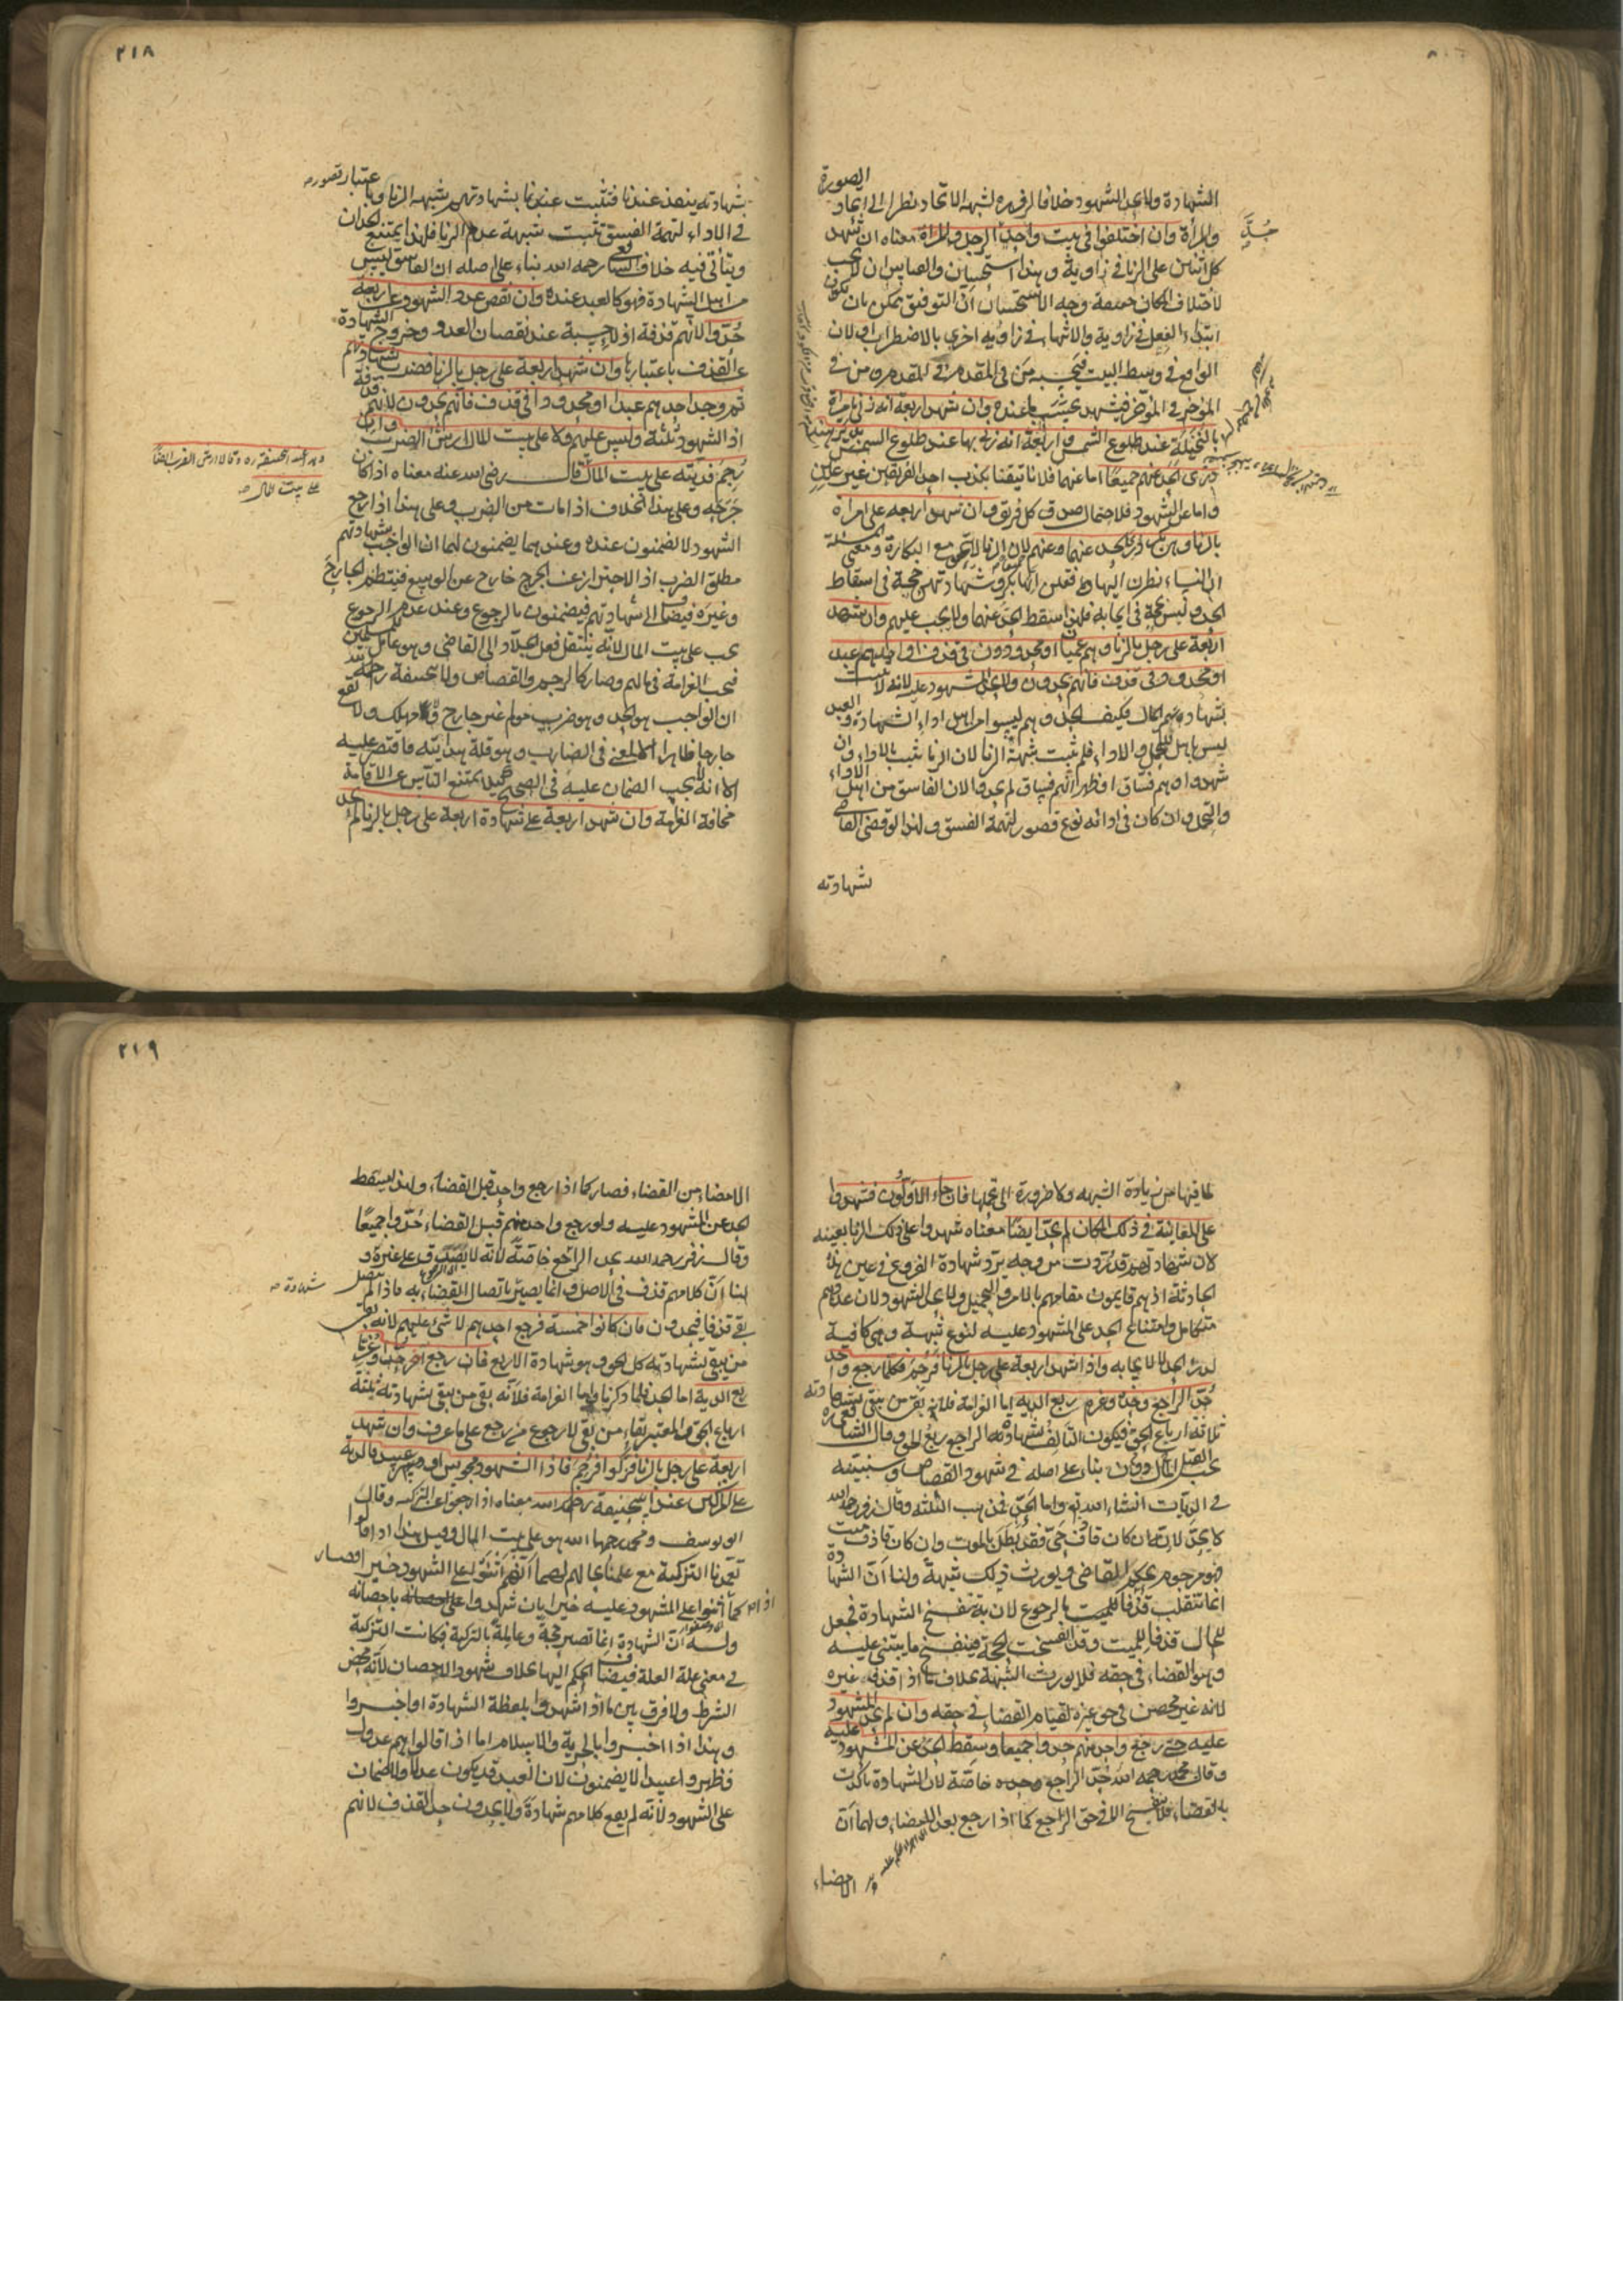 ٢١٨
الصورة
الشهادة ولا يحد الشهود خلافا لزفر ره لشبهة الاتحاد نظرا الى اتحاد
والمرأة وان اختلفوا في بيت واحد حُدّ الرجل والمرأة معناه ان شهد
كل اثنين على الزنا في زاوية وهذا استحسان والقياس ان لا يجب
لاختلاف المكان حقيقة وجه الاستحسان انّ التوفيق ممكن بان يكون
ابتداء الفعل في زاوية والانتهاء في زاوية اخرى بالاضطراب او لان
الواقع في وسط البيت فيحسبه من في المقدم في المقدم ومن في
المؤخر في المؤخر فيشهد بحسب ما عنده وان شهد اربعة انه زنى بامرأة
بالنُّخَيلة عند طلوع الشمس واربعة انه زنى بها عند طلوع الشمس بدير هند
درئ الحد عنهم جميعًا اما عنهما فلانا تيقنا بكذب احد الفريقين غير عين
واما عن الشهود فلاحتمال صدق كل فريق وان شهد اربعة على امرأة
بالزنا وهي بكر درئ الحد عنهما وعنهم لان الزنا لا يتحقق مع البكارة ومعنى المسئلة
ان النساء نظرن اليها فقلن انها بكر وشهادتهن حجة في اسقاط
الحد وليس بحجة في ايجابه فلهذا سقط الحد عنهما ولا يجب عليهم وان شهد
اربعة على رجل بالزنا وهم عميان او محدودون في قذف او احدهم عبد
او محدود في قذف فانهم يحدون ولا يحد المشهود عليه لانه لا يثبت
بشهادتهم المال فكيف الحد وهم ليسوا من اهل اداء الشهادة والعبد
ليس باهل للتحمل والاداء فلم تثبت شبهة الزنا لان الزنا يثبت بالاداء وان
شهدوا وهم فسّاق او ظهر انهم فساق لم يحدوا لان الفاسق من اهل الاداء
والتحمل وان كان في ادائه نوع قصور لتهمة الفسق ولهذا لو قضى القاضي
شهادته
حُدَّ
بشهادته ينفذ عندنا فتثبت عندنا بشهادتهم شبهة الزنا وباعتبار قصور
في الاداء لتهمة الفسق تثبت شبهة عدم الزنا فلهذا يمتنع الحدان
ويتأتى فيه خلاف الشافعي رحمه الله بناء على اصله ان الفاسق ليس
من اهل الشهادة فهو كالعبد عنده وان نقص عدد الشهود عن اربعة
حُدّوا لانهم قذفة اذ لا حسبة عند نقصان العدد وخروج الشهادة
عن القذف باعتبارها وان شهد اربعة على رجل بالزنا فضرب بشهادتهم
ثم وجد احدهم عبدا او محدودا في قذف فانهم يحدون لانهم قذفة
اذ الشهود ثلثة وليس عليهم ولا على بيت المال ارش الضرب وان
رُجِمَ فديته على بيت المال قال رضي الله عنه معناه اذا كان
جَرَحَه وعلى هذا الخلاف اذا مات من الضرب وعلى هذا اذا رجع
الشهود لا يضمنون عنده وعندهما يضمنون لهما ان الواجب بشهادتهم
مطلق الضرب اذ الاحتراز عن الجرح خارج عن الوسع فينتظم الجارح
وغيره فيضاف الى شهادتهم فيضمنون بالرجوع وعند عدم الرجوع
يجب على بيت المال لانّه ينتقل فعل الجلّاد الى القاضي وهو عامل للمسلمين
فيجب الغرامة في مالهم وصار كالرجم والقصاص ولابي حنيفة رحمه الله
ان الواجب هو الحد وهو ضرب مولم غير جارح ولا مهلك ولا يقع
جارحا ظاهرا الا لمعنى في الضارب وهو قلة هدايته فاقتصر عليه
الا انه لا يجب الضمان عليه في الصحيح كيلا يمتنع الناس عن الاقامة
مخافة الغرامة وان شهد اربعة على شهادة اربعة على رجل بالزنا لم يحد
على بيت المال
٢١٩
لما فيها من زيادة الشبهة ولا ضرورة الى تحملها فان جاء الاوّلون فشهدوا
على المعاينة في ذلك المكان لم يحدّ ايضا معناه شهدوا على ذلك الزنا بعينه
لان شهادتهم قد رُدّت من وجه بردّ شهادة الفروع في عين هذه
الحادثة اذ هم قايمون مقامهم بالامر والتحميل ولا يحد الشهود لان عددهم
متكامل وامتناع الحد على المشهود عليه لنوع شبهة وهي كافية
لدرء الحد لا لايجابه واذا شهد اربعة على رجل بالزنا فَرُجِمَ فكلما رجع واحد
حُدّ الراجع وحده وغرم ربع الدية اما الغرامة فلانه بقي من يبقى بشهادته
ثلاثة ارباع الحق فيكون التالف بشهادة الراجع ربع الحق وقال الشافعي ره
يجب القتل دون المال بناء على اصله في شهود القصاص وسنبينه
في الديات انشاء الله تع واما الحدّ فمذهب الثلثة وقال زفر رحمه الله
لا يحدّ لانه ان كان قاذف حيّ فقد بطل بالموت وان كان قاذف ميت
فهو مرجوم بحكم القاضي ويورث ذلك شبهةً ولنا انّ الشهادة
انما تنقلب قذفا للميت بالرجوع لان به تنفسخ الشهادة فجعل
للحال قذفا للميت وقد انفسخت الحجة فينفسخ ما يبتني عليه
وهو القضاء في حقه فلا يورث الشبهة بخلاف ما اذا قذفه غيره
لانه غير محصن في حق غيره لقيام القضاء في حقه وان لم يحد المشهود
عليه حتى رجع واحد منهم حدوا جميعا وسقط الحدّ عن المشهود عليه
وقال محمد رحمه الله حُدّ الراجع وحده خاصّة لان الشهادة تأكدت
بالقضاء فلا ينفسخ الا في حق الراجع كما اذا رجع بعد الامضاء ولهما انّ
الامضاء
الامضاء من القضاء فصار كما اذا رجع واحد قبل القضاء ولهذا يسقط
الحد عن المشهود عليه ولو رجع واحد منهم قبل القضاء حُدّوا جميعًا
وقال زفر رحمه الله يحد الراجع خاصّةً لانّه لا يصدّق على غيره و
لنا انّ كلامهم قذف في الاصل وانما يصير شهادة باتصال القضاء به فاذا لم يتصل
بقي قذفا فيحدون فان كانوا خمسة فرجع احدهم لا شئ عليهم لانه بقي
من يبقى بشهادته كل الحق وهو شهادة الاربع فان رجع آخر حدا وغرما
ربع الدية اما الحد فلما ذكرنا واما الغرامة فلانّه بقي من يبقى بشهادته ثلثة
ارباع الحق والمعتبر بقاء من بقي لا رجوع من رجع على ما عرف وان شهد
اربعة على رجل بالزنا فزكّوا فرُجِمَ فاذا الشهود مجوس او عبيد فالدية
على المزكين عند ابي حنيفة رحمه الله معناه اذا رجعوا عن التزكية وقال
ابو يوسف ومحمد رحمهما الله هو على بيت المال وقيل هذا اذا قالوا
تعمّدنا التزكية مع علمنا بحالهم لهما انّهم اثنوا على الشهود خيرا فصار
كما اذا اثنوا على المشهود عليه خيرا بان شهدوا باحصانه
وله انّ الشهادة انما تصير حجة وعاملة بالتزكية فكانت التزكية
في معنى علة العلة فيضاف الحكم اليها بخلاف شهود الاحصان لانّه محض
الشرط ولا فرق بين ما اذا شهدوا بلفظة الشهادة او اخبروا
وهذا اذا اخبروا بالحرية والاسلام اما اذا قالوا هم عدول
فظهروا عبيدا لا يضمنون لان العبد قد يكون عدلا ولا ضمان
على الشهود لانّه لم يقع كلامهم شهادةً ولا يحدون حد القذف لانهم